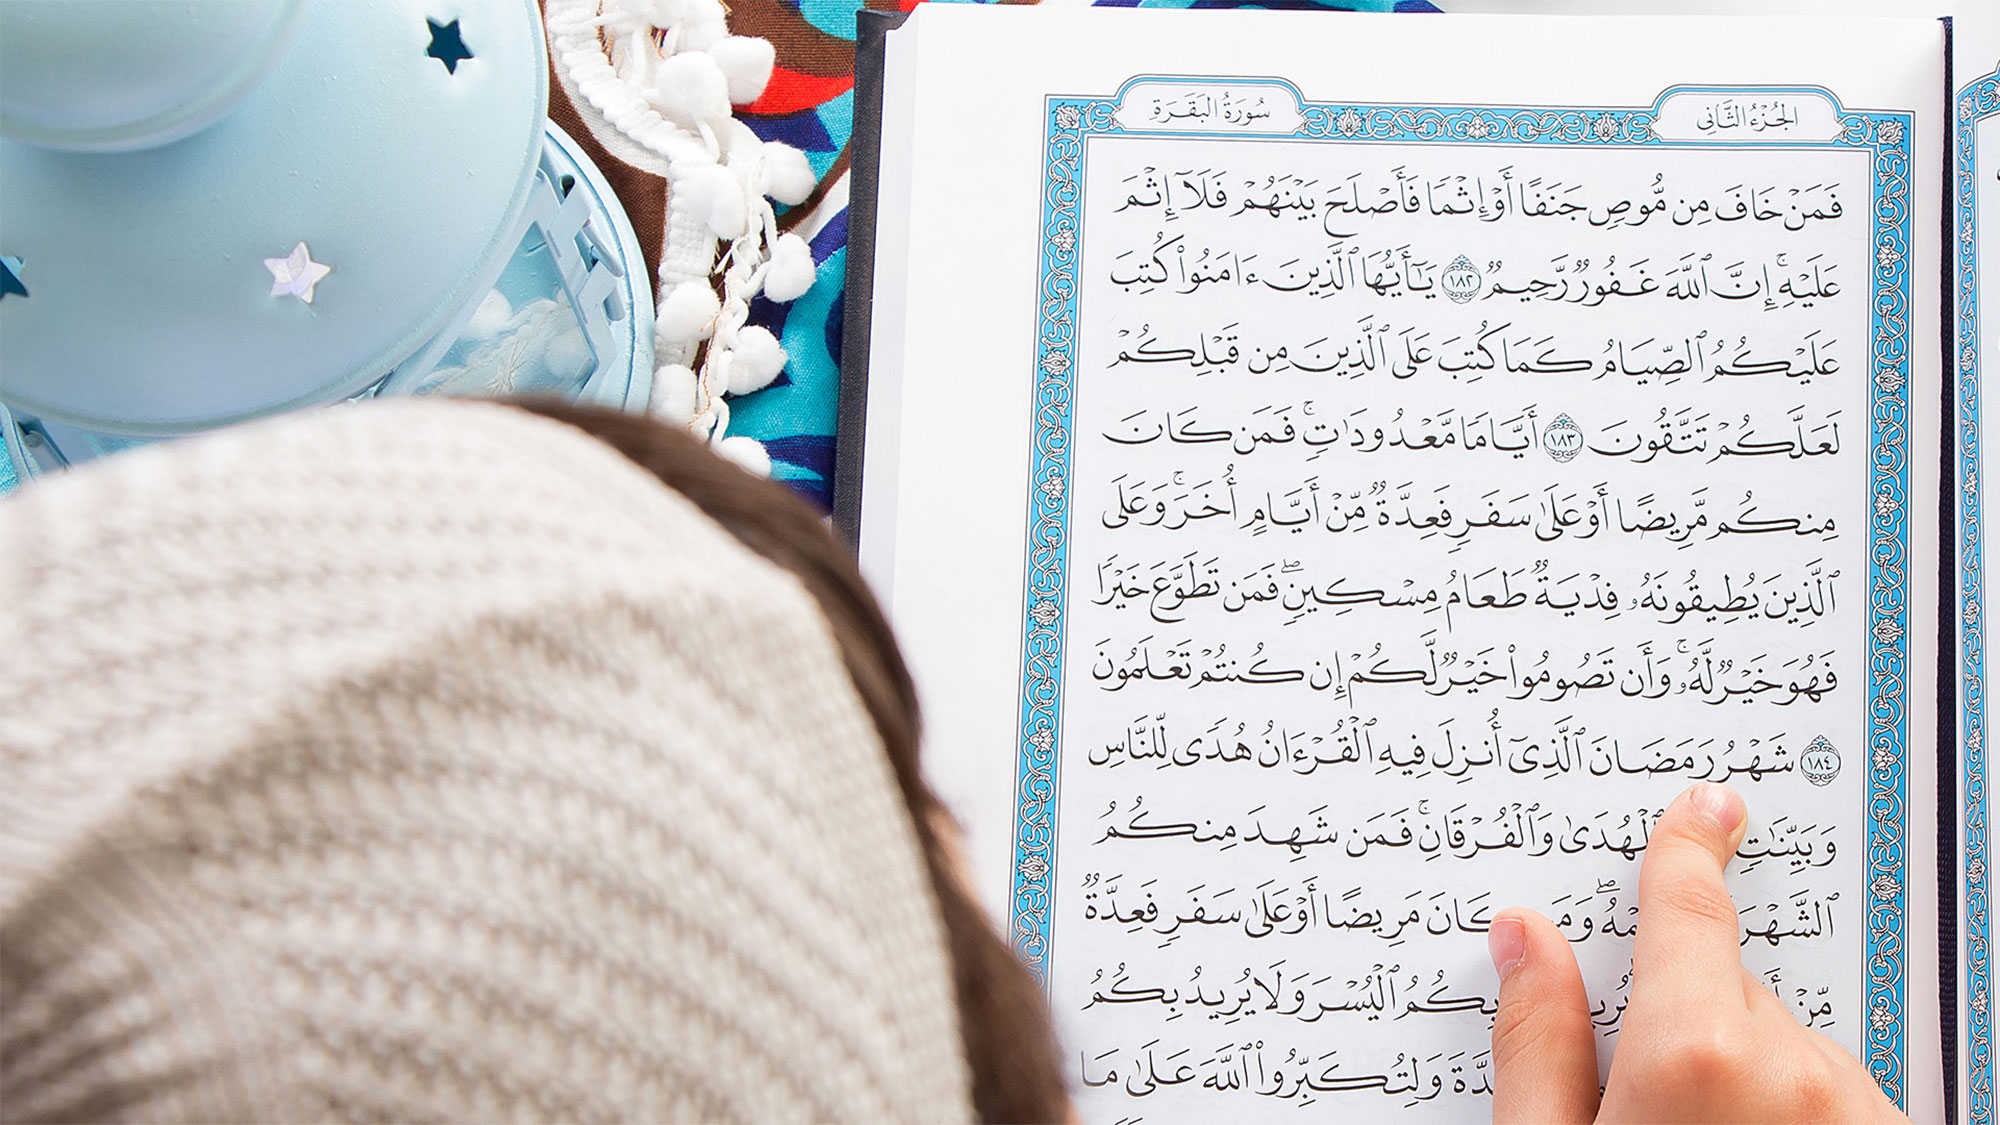 الجُزْءُ الثَّانِي
سُورَةُ البَقَرَةِ
فَمَنْ خَافَ مِن مُّوصٍ جَنَفًا أَوْ إِثْمًا فَأَصْلَحَ بَيْنَهُمْ فَلَآ إِثْمَ
عَلَيْهِ ۚ إِنَّ ٱللَّهَ غَفُورٌ رَّحِيمٌ ١٨٢ يَـٰٓأَيُّهَا ٱلَّذِينَ ءَامَنُوا۟ كُتِبَ
عَلَيْكُمُ ٱلصِّيَامُ كَمَا كُتِبَ عَلَى ٱلَّذِينَ مِن قَبْلِكُمْ
لَعَلَّكُمْ تَتَّقُونَ ١٨٣ أَيَّامًا مَّعْدُودَٰتٍ ۚ فَمَن كَانَ
مِنكُم مَّرِيضًا أَوْ عَلَىٰ سَفَرٍ فَعِدَّةٌ مِّنْ أَيَّامٍ أُخَرَ ۚ وَعَلَى
ٱلَّذِينَ يُطِيقُونَهُۥ فِدْيَةٌ طَعَامُ مِسْكِينٍ ۖ فَمَن تَطَوَّعَ خَيْرًا
فَهُوَ خَيْرٌ لَّهُۥ ۚ وَأَن تَصُومُوا۟ خَيْرٌ لَّكُمْ إِن كُنتُمْ تَعْلَمُونَ
١٨٤ شَهْرُ رَمَضَانَ ٱلَّذِىٓ أُنزِلَ فِيهِ ٱلْقُرْءَانُ هُدًى لِّلنَّاسِ
وَبَيِّنَـٰتٍ ٱلْهُدَىٰ وَٱلْفُرْقَانِ ۚ فَمَن شَهِدَ مِنكُمُ
ٱلشَّهْرَ وَمَن كَانَ مَرِيضًا أَوْ عَلَىٰ سَفَرٍ فَعِدَّةٌ
مِّنْ بِكُمُ ٱلْيُسْرَ وَلَا يُرِيدُ بِكُمُ
وَلِتُكَبِّرُوا۟ ٱللَّهَ عَلَىٰ مَا